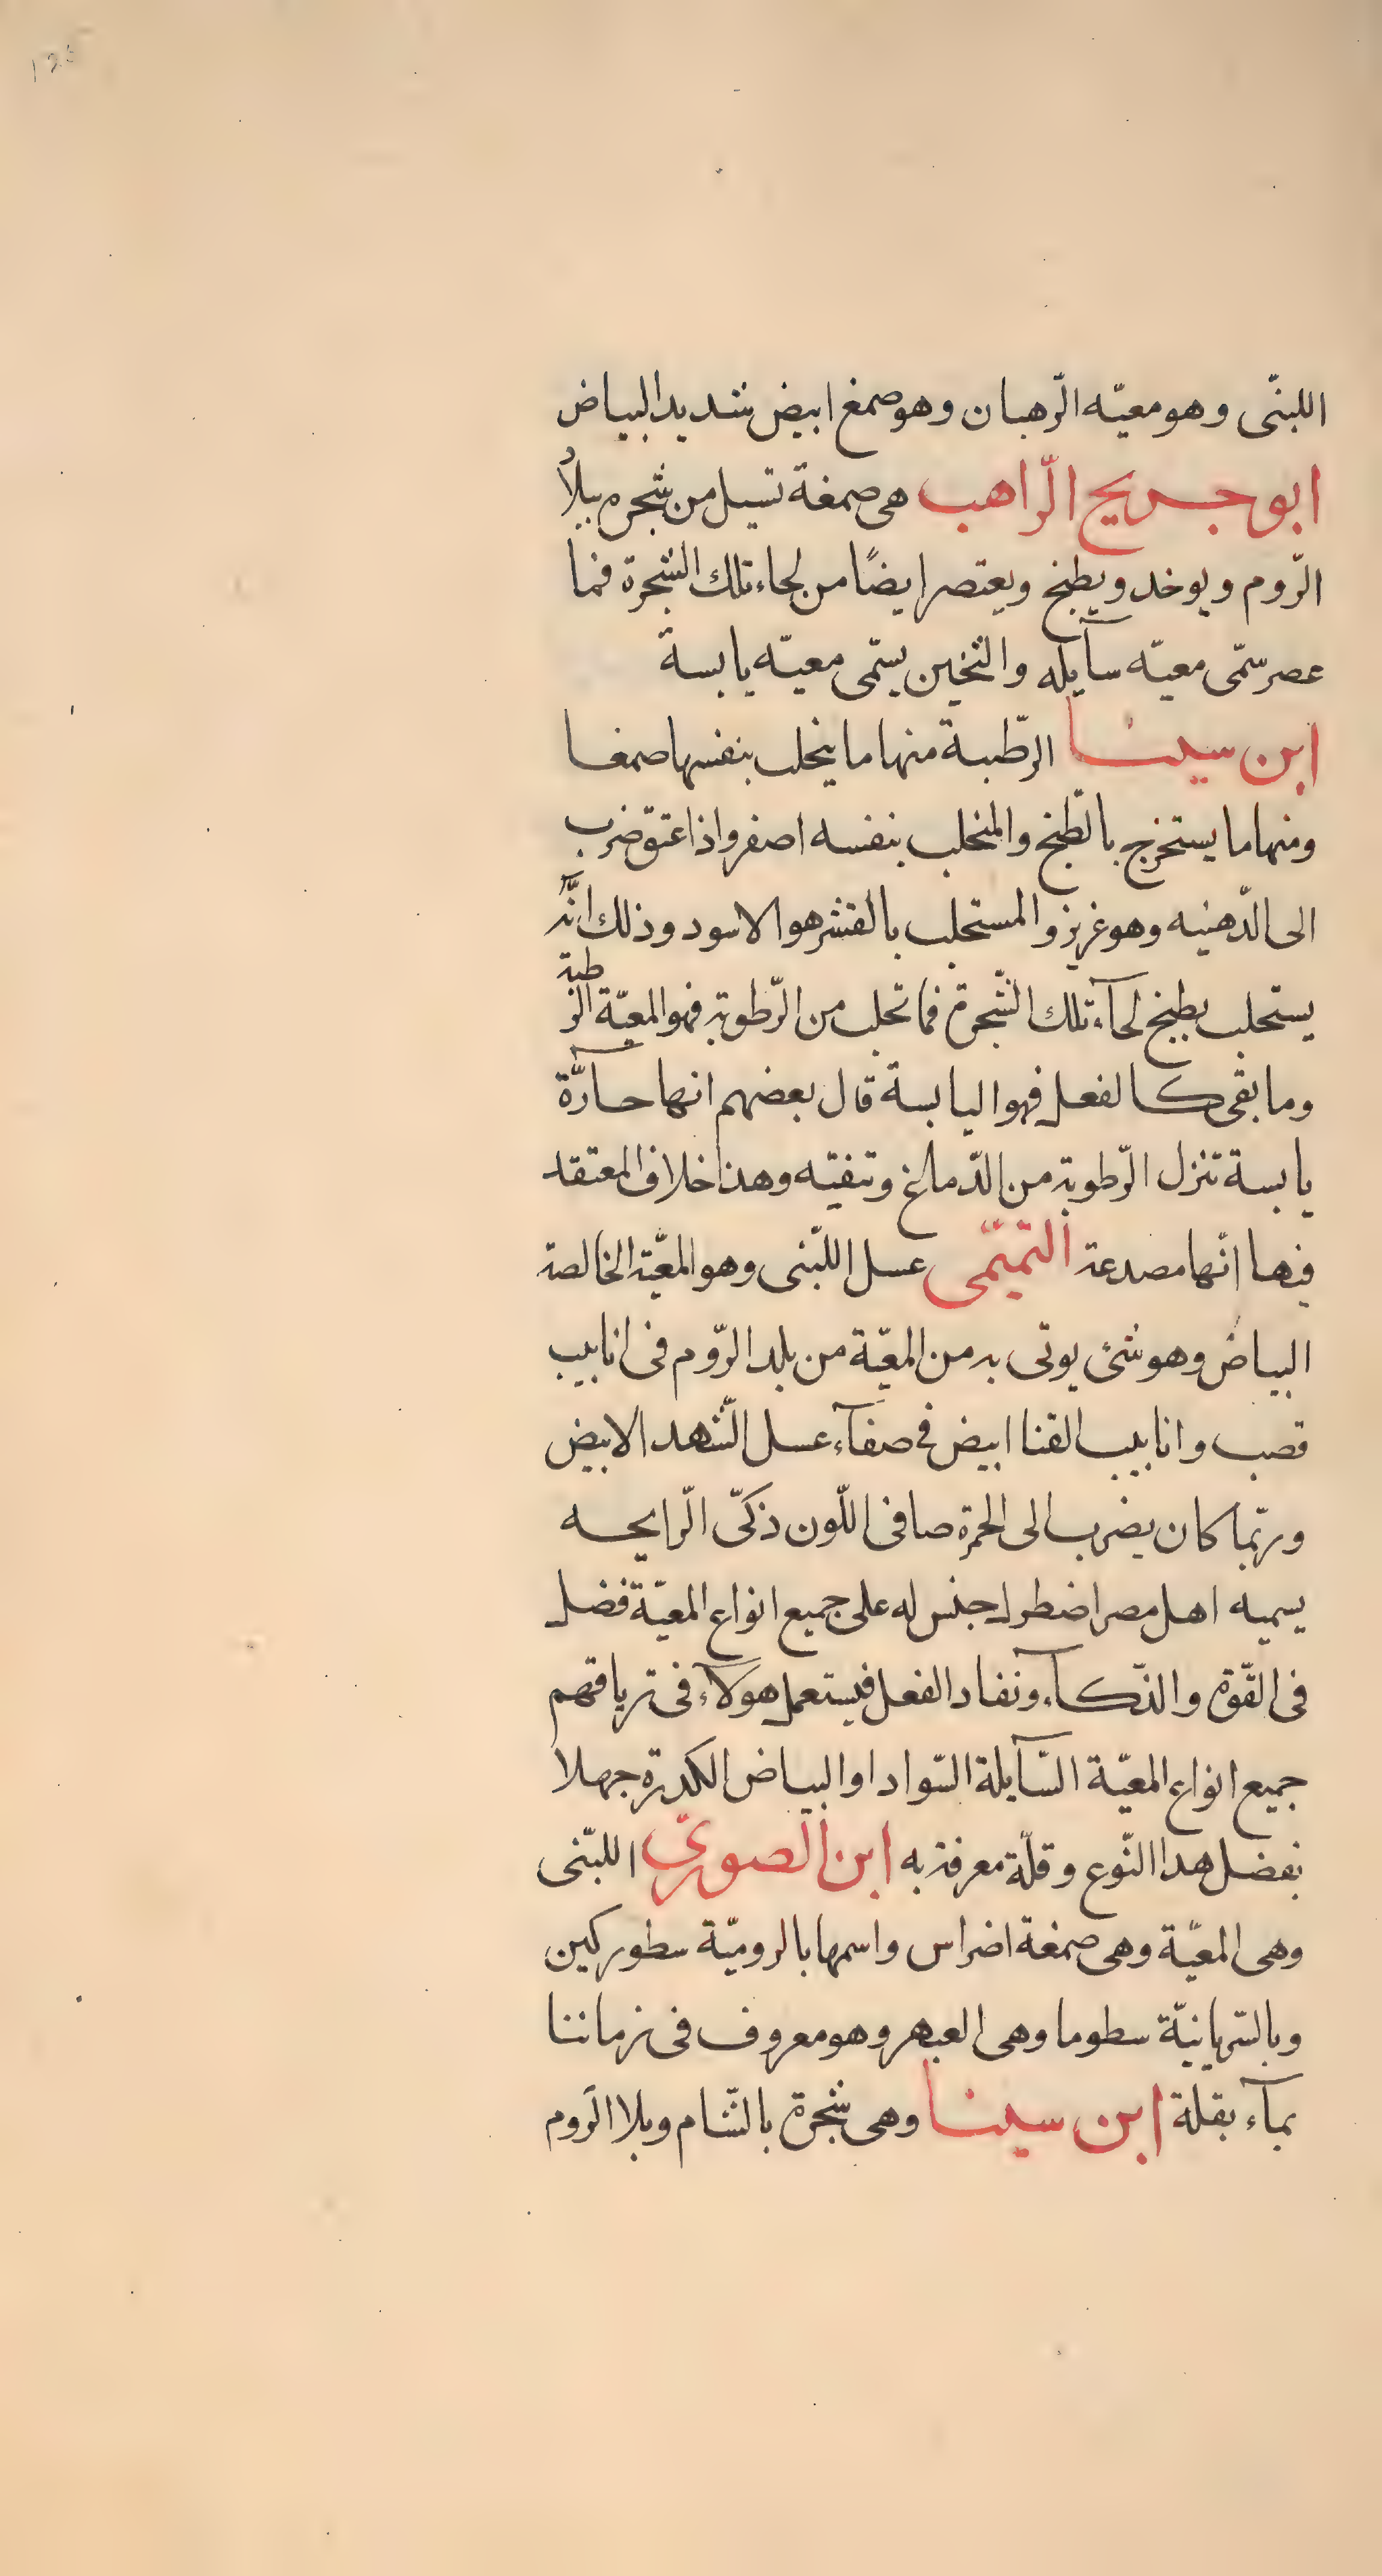 اللبنّى وهو معيّه الرّهبان وهو صمغ ابيض شديد البياض
ابو جريج الرّاهب هى صمغة تسيل من شجره ببلاد
الرّوم ويوخد ويطبخ ويعتصر ايضًا من لحاء تلك الشّجرة فما
عصر سمّى معيّه سآيله والثخين يسمّى معيّه يابسة
ابن سينا الرّطبة منها ما ينحلب بنفسها صمغا
ومنها ما يستخرج بالطّبخ والمنحلب بنفسه اصفر واذا عتق ضرب
الى الدّهنيه وهو غريز والمستحلب بالقشر هو الاسود وذلك انّه
يستحلب بطبخ لحآء تلك الشّجرة فما تحلب من الرّطوبة فهو المعيّة الرّطبة
وما بقى كالفعل فهو اليابسة قال بعضهم انها حآرّة
يابسة تنزل الرّطوبة من الدّماغ وتنقيّه وهذا خلاف المعتقد
فيها انّها مصدعة التّميمّى عسل اللّبنى وهو المعيّة الخالصة
البياض وهو شئ يوتى به من المعيّة من بلد الرّوم فى انابيب
قصب وانابيب القنا ابيض فى صفآء عسل الشّهد الابيض
وربّما كان يضرب الى الحمرة صافى اللّون ذكىّ الرّايحه
يسميه اهل مصر اضطرك جنس له على جميع انواع المعيّة فضل
فى القّوة والذّكآء ونفاد الفعل فيستعمل هولآء فى ترياقهم
جميع انواع المعيّة السّآيلة السّواد او البياض الكدرة جهلا
بفضل هدا النّوع وقلّة معرفة به ابن الصورىّ اللبّنى
وهى المعيّة وهى صمغة اضراس واسمها بالروميّة سطوركين
وبالسّريانيّة سطوما وهى العبهر وهو معروف فى زماننا
بمآء بقلة ابن سينا وهى شجرة بالشّام وبلاد الرّوم